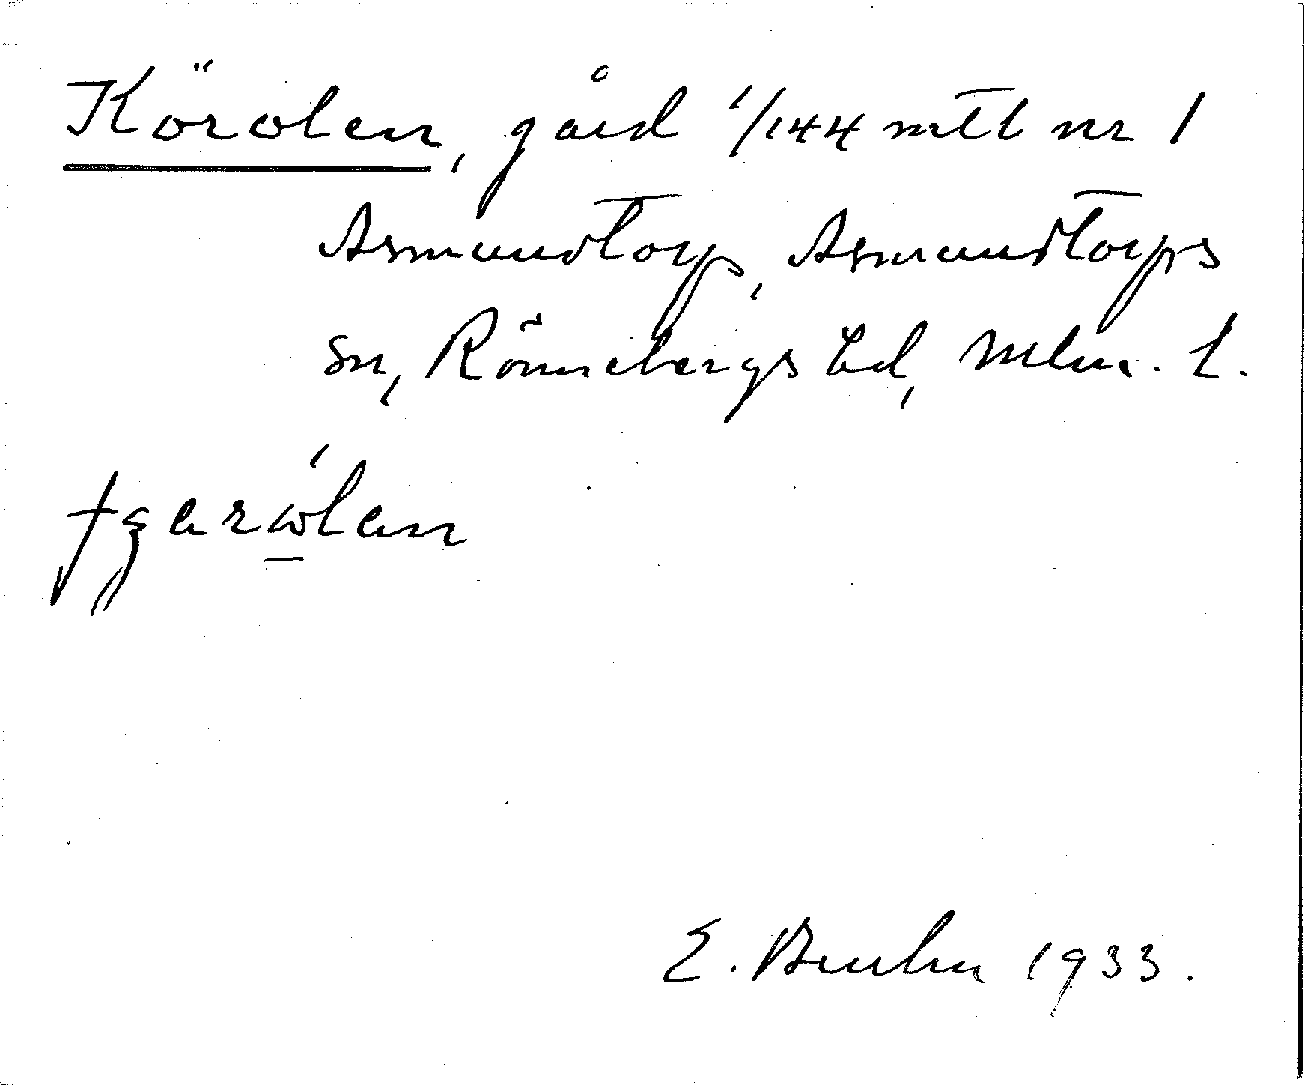 Körolen, gård 1/144 mtl nr 1
Asmundtorp, Asmundtorps
sn, Rönnebergs hd, Mlm. L.
E. Bruhn 1933.